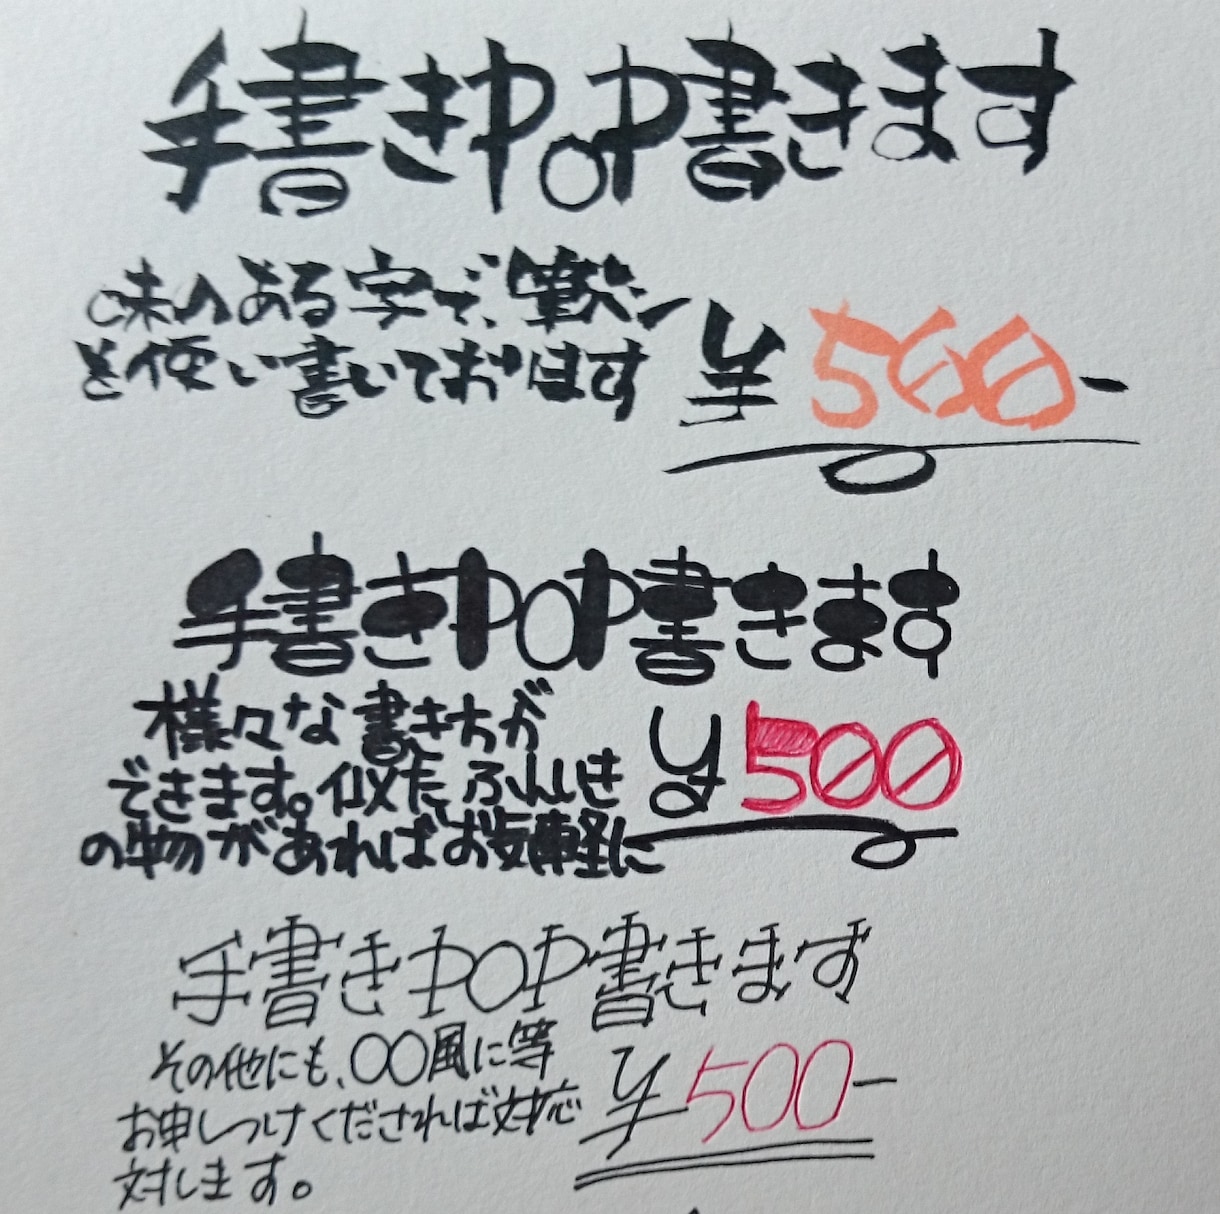 手書きPOP書きます
味のある字で、筆ペン
を使い書いております
¥500-
手書きPOP書きます
様々な書き方が
できます。似た、ふんいき
の物があればお気軽に
¥500
手書きPOP書きます
その他にも、〇〇風に等
お申しつけくだされば対応
対します。
¥500-